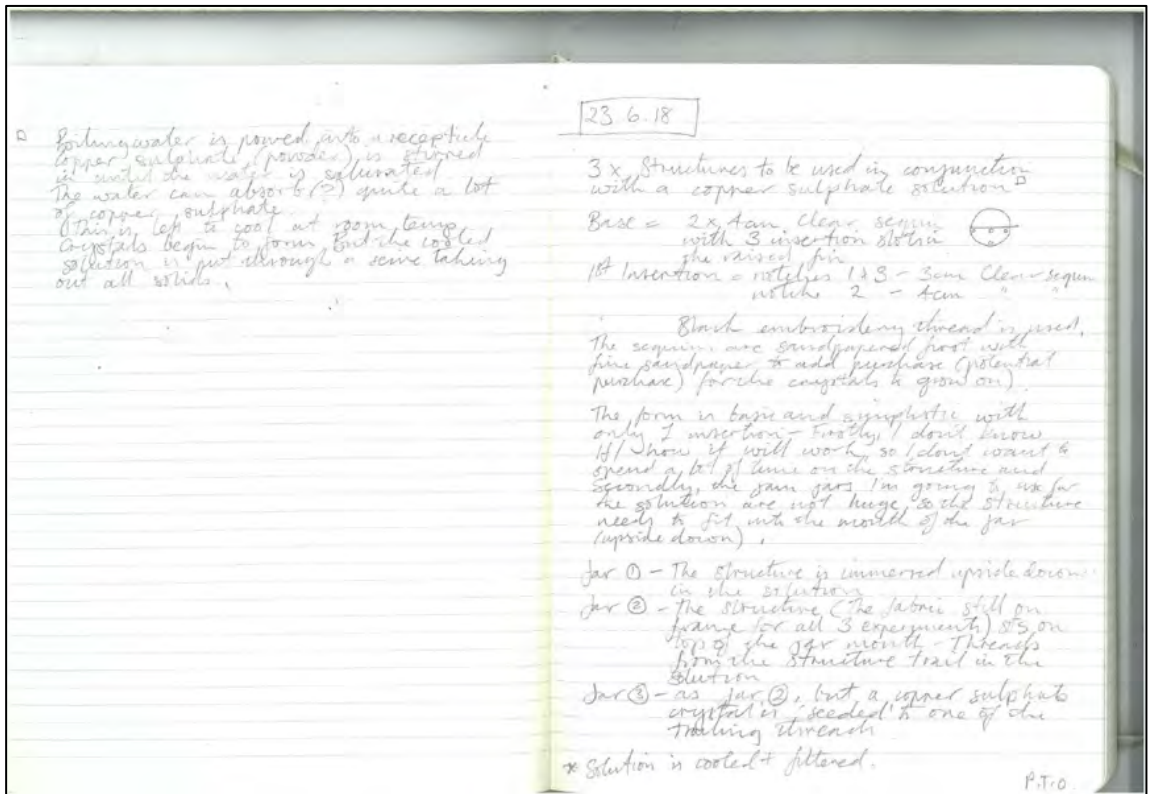 ▷ Boiling water is poured into a recepticle
copper sulphate (powder) is stirred
in until the water is saturated
The water can absorb (?) quite a lot
of copper sulphate.
This is left to cool at room temp
Crystals begin to form But the cooled
solution is put through a seive taking
out all solids.
23.6.18
3 x Structures to be used in conjunction
with a copper sulphate solution ▷
Base = 2 x 4cm Clear sequin
with 3 insertion slots in
the raised fin
1st Insertion = notches 1 & 3 - 3cm Clear sequin
notche 2 - 4cm " "
Black embroidery thread is used.
The sequins are sandpapered first with
fine sandpaper to add purchase (potential
purchase) for the crystals to grow on).
The form is basic and with
only 1 insertion - Firstly, I don't know
if / how it will work, so I dont want to
spend a lot of time on the structure and
Secondly, the jam jars I'm going to use for
the solution are not huge, so the structure
needs to fit into the mouth of the jar
(upside down).
Jar ① - The structure is immersed upside down
in the solution
Jar ② - The structure (The fabric still on
frame for all 3 experiments) sits on
top of the jar mouth - Threads
from the structure trail in the
solution
Jar ③ - as jar ②, but a copper sulphate
crystal is 'seeded' to one of the
trailing threads
* Solution is cooled + filtered.
P.T.O.